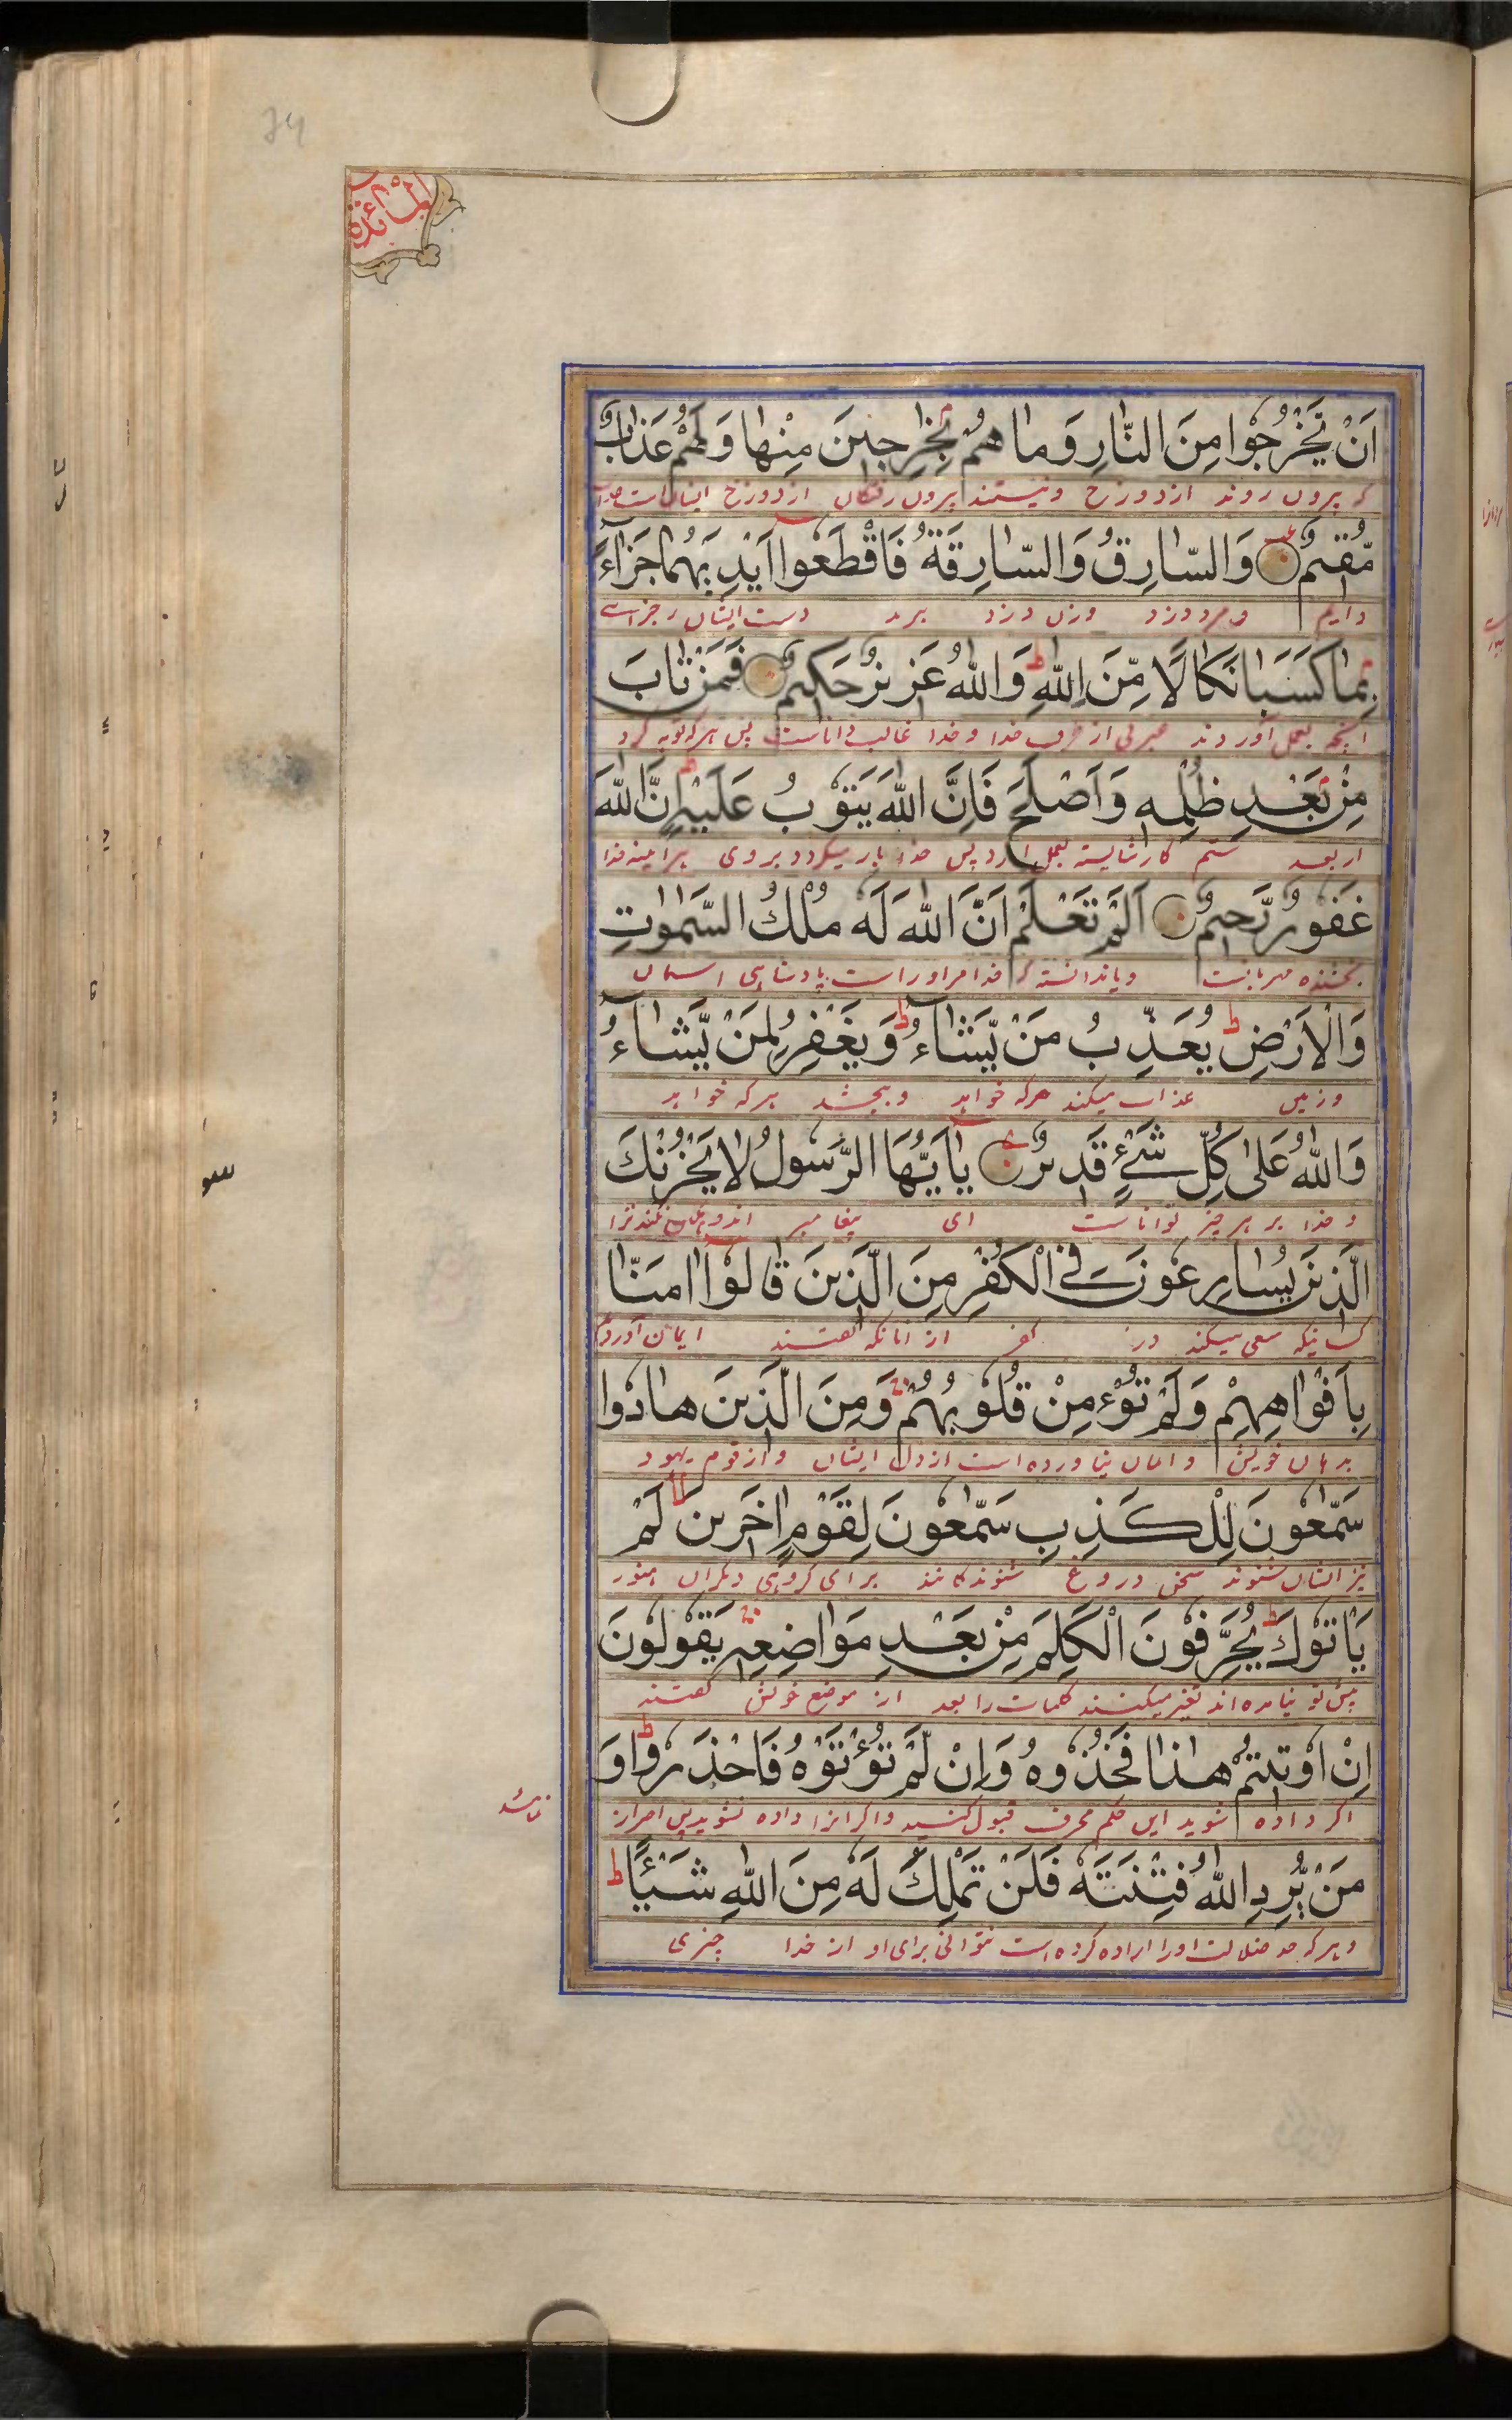 74
المائدة
اَنْ يَّخْرُجُوْا مِنَ النَّارِ وَمَا هُمْ بِخٰرِجِيْنَ مِنْهَا وَلَهُمْ عَذَابٌ
که بیرون روند از دوزخ و نیستند بیرون رفتگان از دوزخ ایشان است عذاب
مُّقِيْمٌ وَالسَّارِقُ وَالسَّارِقَةُ فَاقْطَعُوْا اَيْدِيَهُمَا جَزَاءً
دایم و مرد دزد و زن دزد ببرید دست ایشان جزای
بِمَا كَسَبَا نَكَالًا مِّنَ اللّٰهِ ط وَاللّٰهُ عَزِيْزٌ حَكِيْمٌ فَمَنْ تَابَ
انچه بعمل آوردند عبرتی از طرف خدا و خدا غالب دانا است پس هر که توبه کرد
مِنْ بَعْدِ ظُلْمِهٖ وَاَصْلَحَ فَاِنَّ اللّٰهَ يَتُوْبُ عَلَيْهِ اِنَّ اللّٰهَ
از بعد ستم کار شایسته بعمل آرد پس خدا باز میگردد بروی هر آئینه خدا
غَفُوْرٌ رَّحِيْمٌ اَلَمْ تَعْلَمْ اَنَّ اللّٰهَ لَهٗ مُلْكُ السَّمٰوٰتِ
بخشنده مهربانست و یا ندانسته که خدا مر او راست پادشاهی اسمان
وَالْاَرْضِ ط يُعَذِّبُ مَنْ يَّشَاءُ ط وَيَغْفِرُ لِمَنْ يَّشَاءُ
و زمین عذاب میکند هر که خواهد و ببخشد هر که خواهد
وَاللّٰهُ عَلٰى كُلِّ شَيْءٍ قَدِيْرٌ يٰاَيُّهَا الرَّسُوْلُ لَا يَحْزُنْكَ
و خدا بر هر چیز تواناست ای پیغامبر اندوهگین نکند ترا
الَّذِيْنَ يُسَارِعُوْنَ فِي الْكُفْرِ مِنَ الَّذِيْنَ قَالُوْا اٰمَنَّا
کسانیکه سعی میکند در کفر از انانکه گفتند ایمان آوردیم
بِاَفْوَاهِهِمْ وَلَمْ تُؤْمِنْ قُلُوْبُهُمْ وَمِنَ الَّذِيْنَ هَادُوْا
بدهان خویش و ایمان نیاورده است از دل ایشان و از قوم یهود
سَمّٰعُوْنَ لِلْكَذِبِ سَمّٰعُوْنَ لِقَوْمٍ اٰخَرِيْنَ لا لَمْ
نیز ایشان شنوند سخن دروغ شنوندگانند برای گروهی دیگران هنوز
يَاْتُوْكَ ط يُحَرِّفُوْنَ الْكَلِمَ مِنْ بَعْدِ مَوَاضِعِهٖ يَقُوْلُوْنَ
پیش تو نیامده اند تغیر میکنند کلمات را بعد از موضع خویش گفتند
اِنْ اُوْتِيْتُمْ هٰذَا فَخُذُوْهُ وَاِنْ لَّمْ تُؤْتَوْهُ فَاحْذَرُوْا ط وَ
اگر داده شوید این حکم محرف قبول کنید و اگر انرا داده نشوید پس احراز
مَنْ يُّرِدِ اللّٰهُ فِتْنَتَهٗ فَلَنْ تَمْلِكَ لَهٗ مِنَ اللّٰهِ شَيْـًٔا ط
و هر که ضلالت او را اراده کرده است نتوانی برای او از خدا چیزی